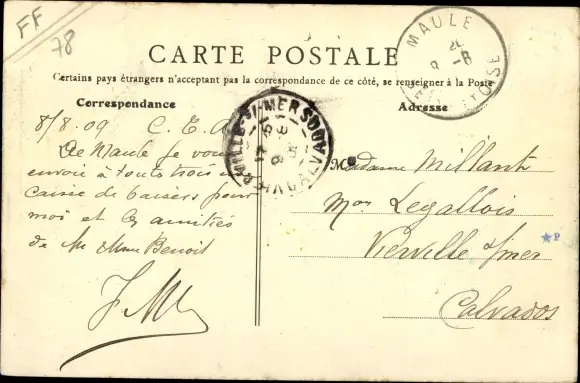 FF
78
CARTE POSTALE
Certains pays étrangers n'acceptant pas la correspondance de ce côté, se renseigner à la Poste
Correspondance
Adresse
MAULE
8/8.09 C. T. A
De Maule je vous
envoie à toutes trois
caisse de baisers pour
moi et les amitiés
de M Mme Benoit
M
Madame Millant
Mon Legallois
Vierville s/mer
Calvados
VIERVILLE-S-MER
CALVADOS